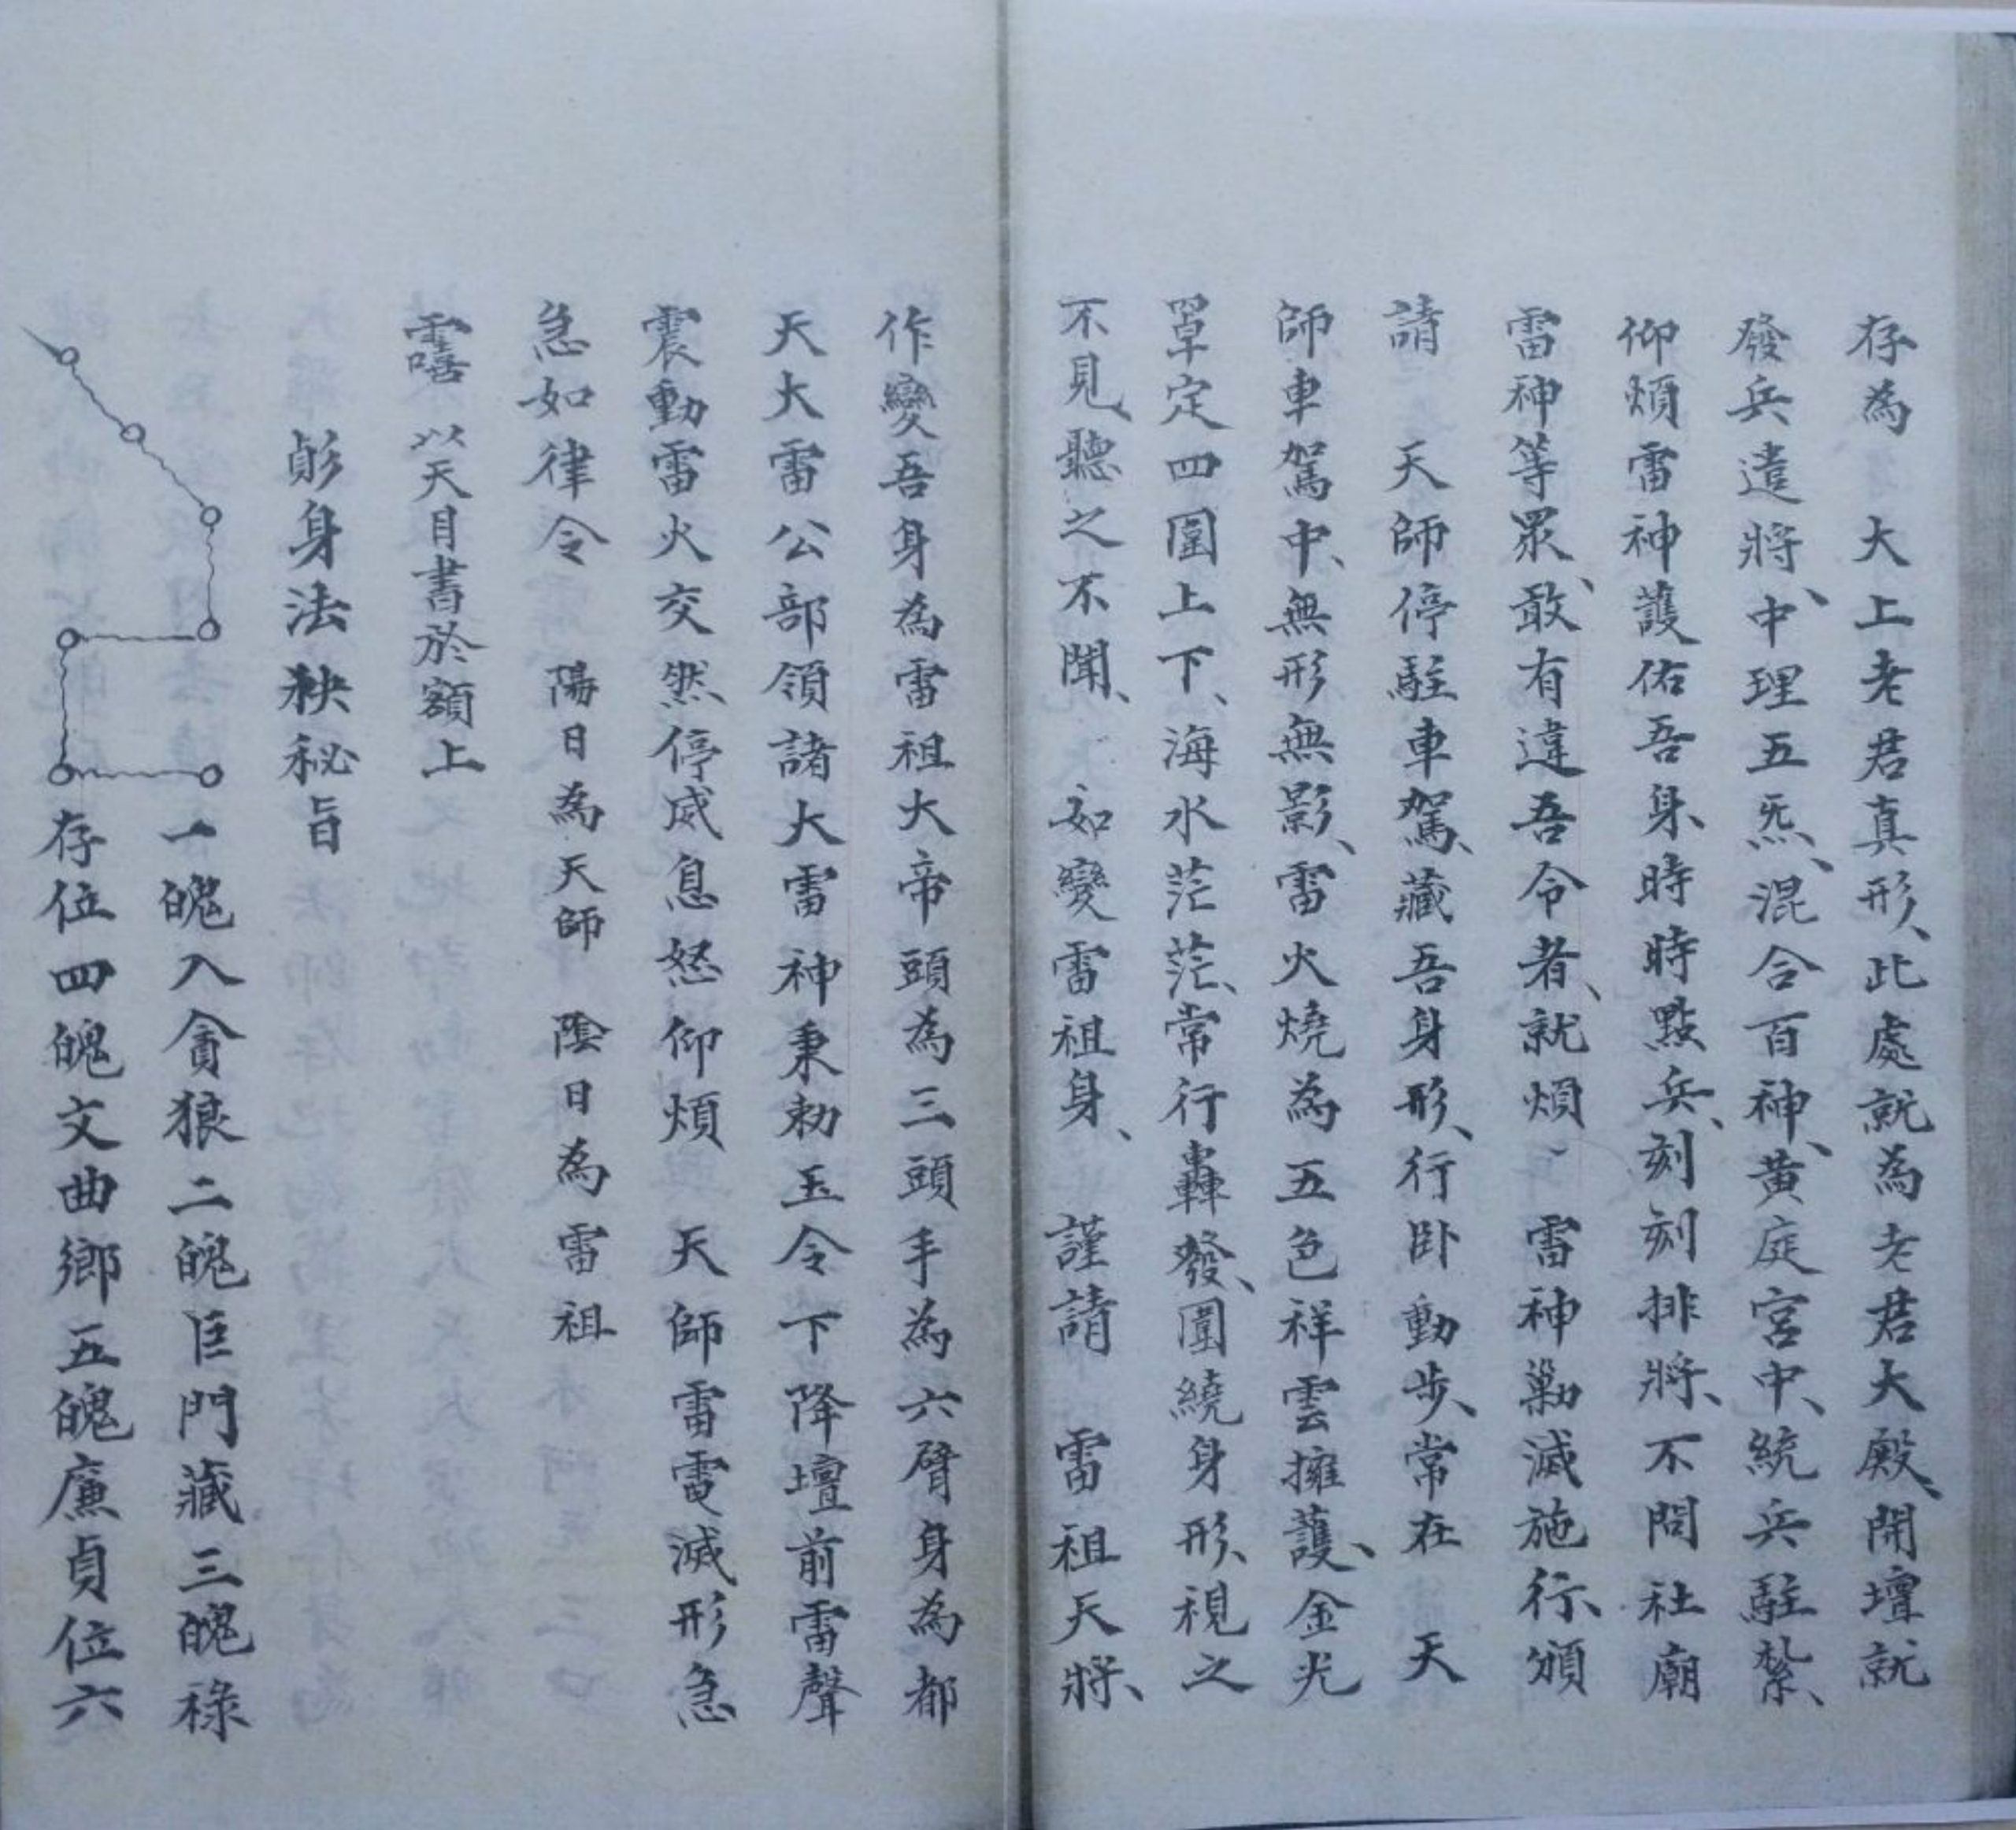 存為　大上老君真形、此處就為老君大殿、開壇就
發兵遣將、中理五炁、混合百神、黄庭宮中、統兵駐紮、
仰煩雷神護佑吾身、時時點兵、刻刻排將、不問社廟
雷神等眾、敢有違吾令者、就煩、雷神勦滅施行、頒
請　天師停駐車駕、藏吾身形、行卧動步、常在　天
師車駕中、無形無影、雷火燒為五色祥雲擁護、金光
罩定四圍上下、海水茫茫、常行轟發、圍繞身形、視之
不見、聽之不聞、　如變雷祖身、　謹請　雷祖天將、
作變吾身為雷祖大帝頭為三頭手為六臂身為都
天大雷公部領諸大雷神秉勑玉令下降壇前雷聲
震動雷火交然停威息怒仰煩　天師雷電滅形急
急如律令　陽日為天師　陰日為雷祖
以天目書於額上
身法秧秘旨
一魄入貪狼二魄巨門藏三魄祿
存位四魄文曲鄉五魄廉貞位六